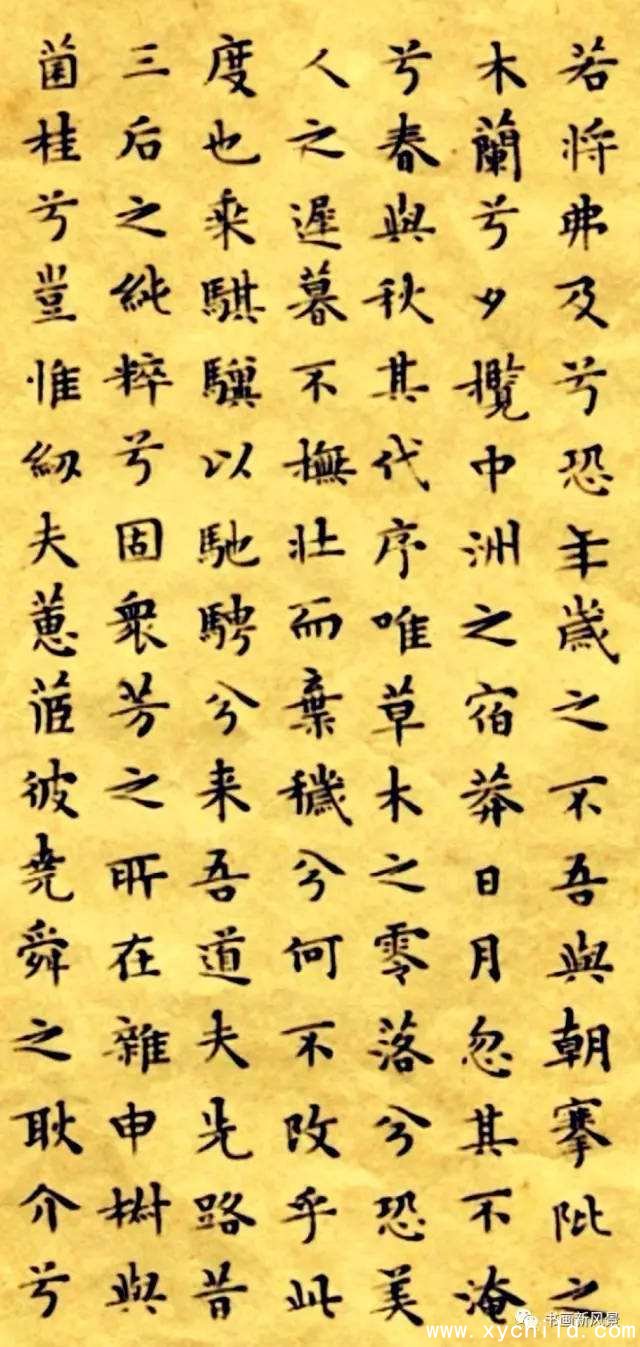 若將弗及兮恐年歲之不吾與朝搴阰之
木蘭兮夕攬中洲之宿莽日月忽其不淹
兮春與秋其代序唯草木之零落兮恐美
人之遲暮不撫壯而棄穢兮何不改乎此
度也乘騏驥以馳騁兮来吾道夫先路昔
三后之純粹兮固衆芳之所在雜申椒與
菌桂兮豈惟紉夫蕙茝彼堯舜之耿介兮
书画新风景
www.xychild.com